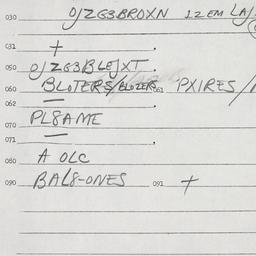 030 0JZG3BROXN 12EM LA/
031 +
050 0JZG3BLEJXT
060 BLOTERS/BLOZERS 061 PXIRES/
062 —
070 PL8AME
071 —
080 A OLC
090 BAL8-ONES 091 +